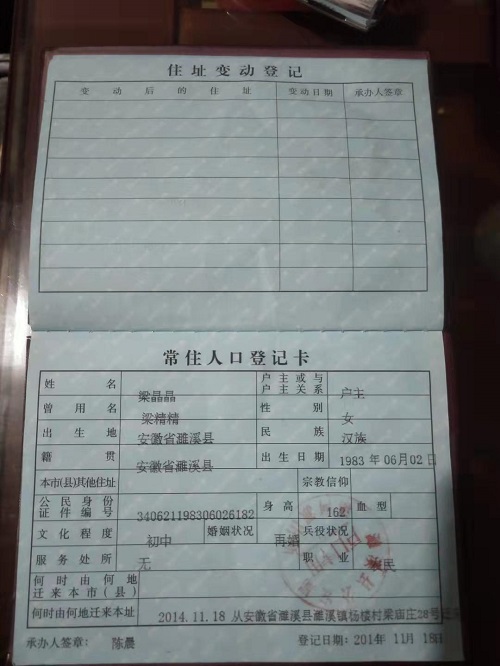 住址变动登记
变动后的住址 变动日期 承办人签章
常住人口登记卡
姓名 梁晶晶 户主或与户主关系 户主
曾用名 梁精精 性别 女
出生地 安徽省濉溪县 民族 汉族
籍贯 安徽省濉溪县 出生日期 1983年06月02日
本市(县)其他住址 宗教信仰
公民身份证件编号 340621198306026182 身高 162 血型
文化程度 初中 婚姻状况 再婚 兵役状况
服务处所 无 职业 民
何时由何地迁来本市(县)
何时由何地迁来本址 2014.11.18 从安徽省濉溪县濉溪镇杨楼村梁庙庄28号
承办人签章: 陈晨 登记日期:2014年11月18日